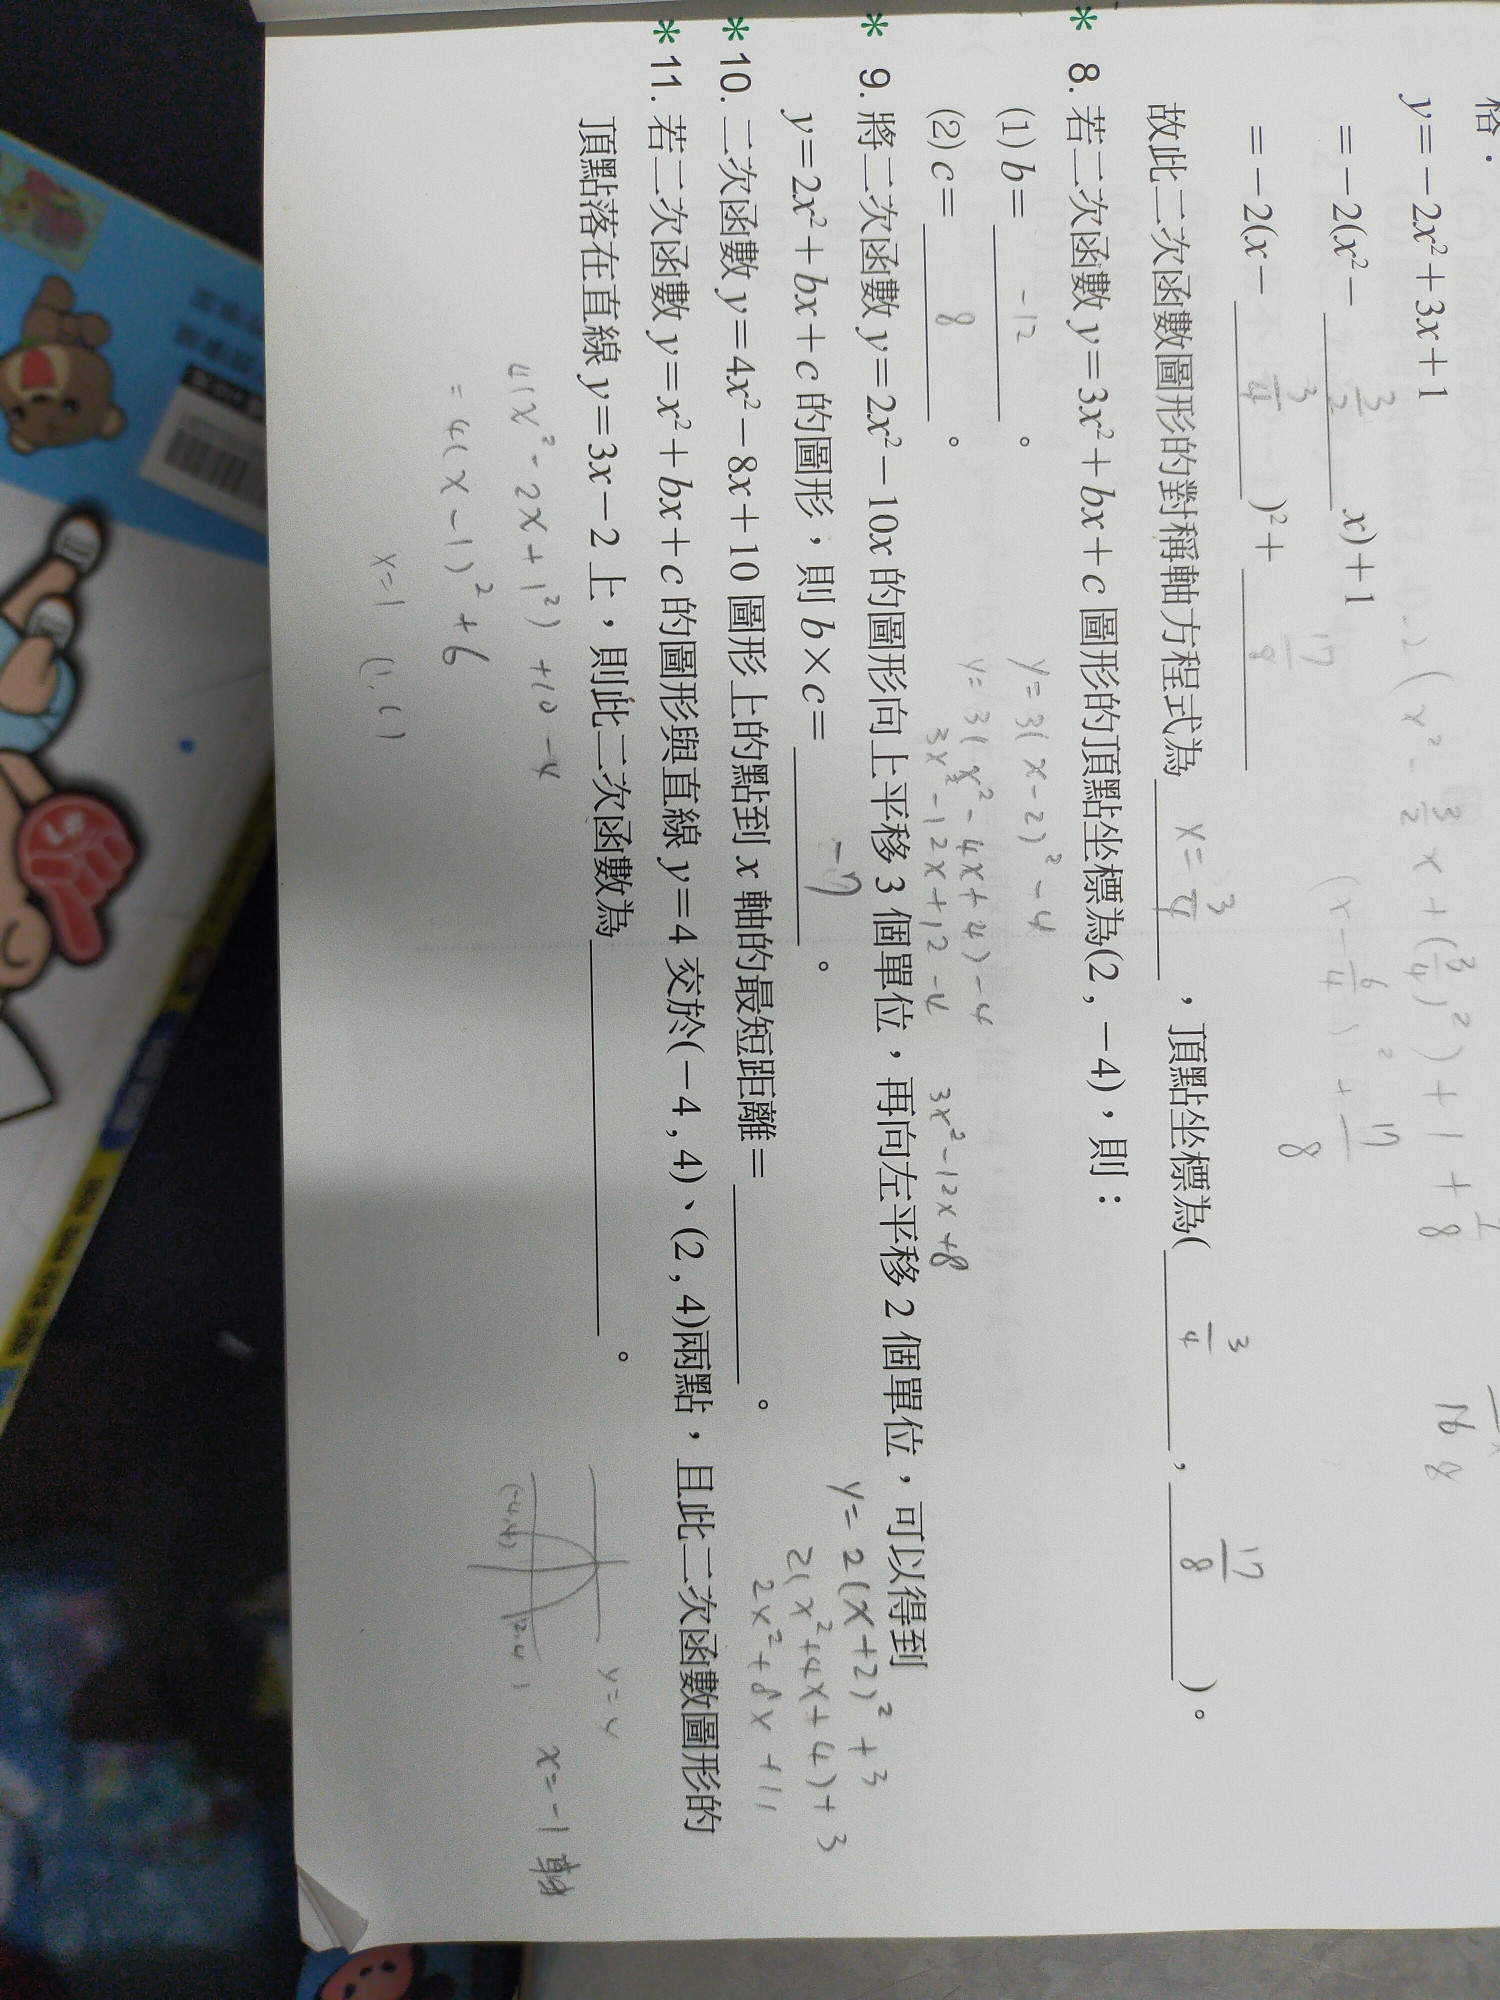 y=-2x²+3x+1
=-2(x²- 3/2 x)+1
=-2(x- 3/4 )²+ 17/8
故此二次函數圖形的對稱軸方程式為 x=3/4 ，頂點坐標為( 3/4 , 17/8 )。
* 8. 若二次函數 y=3x²+bx+c 圖形的頂點坐標為(2 , -4)，則：
(1) b= -12 。
(2) c= 8 。
y=3(x-2)²-4
y=3(x²-4x+4)-4
3x²-12x+12-4
3x²-12x+8
* 9. 將二次函數 y=2x²-10x 的圖形向上平移 3 個單位，再向左平移 2 個單位，可以得到
y=2x²+bx+c 的圖形，則 b×c= 。
y=2(x+2)²+3
2(x²+4x+4)+3
2x²+8x+11
* 10. 二次函數 y=4x²-8x+10 圖形上的點到 x 軸的最短距離= 。
* 11. 若二次函數 y=x²+bx+c 的圖形與直線 y=4 交於(-4 , 4)、(2 , 4)兩點，且此二次函數圖形的
頂點落在直線 y=3x-2 上，則此二次函數為 。
4(x²-2x+1²)+10-4
=4(x-1)²+6
x=1
y=4
(-4,4)
x=-1